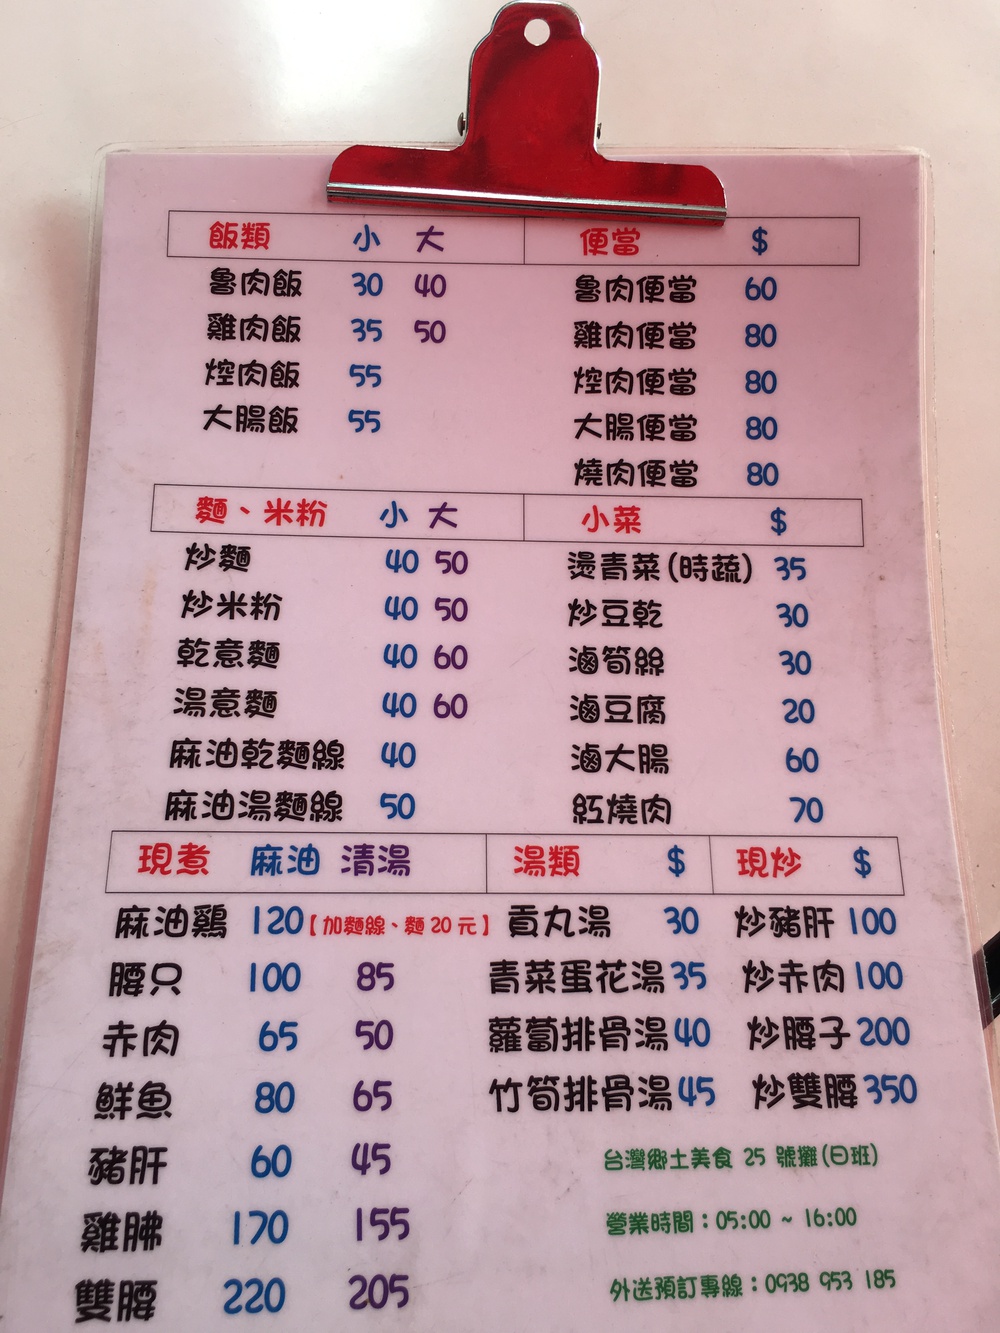 飯類 小 大
魯肉飯 30 40
雞肉飯 35 50
焢肉飯 55
大腸飯 55
便當 $
魯肉便當 60
雞肉便當 80
焢肉便當 80
大腸便當 80
燒肉便當 80
麵、米粉 小 大
炒麵 40 50
炒米粉 40 50
乾意麵 40 60
湯意麵 40 60
麻油乾麵線 40
麻油湯麵線 50
小菜 $
燙青菜(時蔬) 35
炒豆乾 30
滷筍絲 30
滷豆腐 20
滷大腸 60
紅燒肉 70
現煮 麻油 清湯
麻油鷄 120【加麵線、麵 20 元】
腰只 100 85
赤肉 65 50
鮮魚 80 65
豬肝 60 45
雞胇 170 155
雙腰 220 205
湯類 $
貢丸湯 30
青菜蛋花湯 35
蘿蔔排骨湯 40
竹筍排骨湯 45
現炒 $
炒豬肝 100
炒赤肉 100
炒腰子 200
炒雙腰 350
台灣鄉土美食 25 號攤(日班)
營業時間：05:00 ~ 16:00
外送預訂專線：0938 953 185